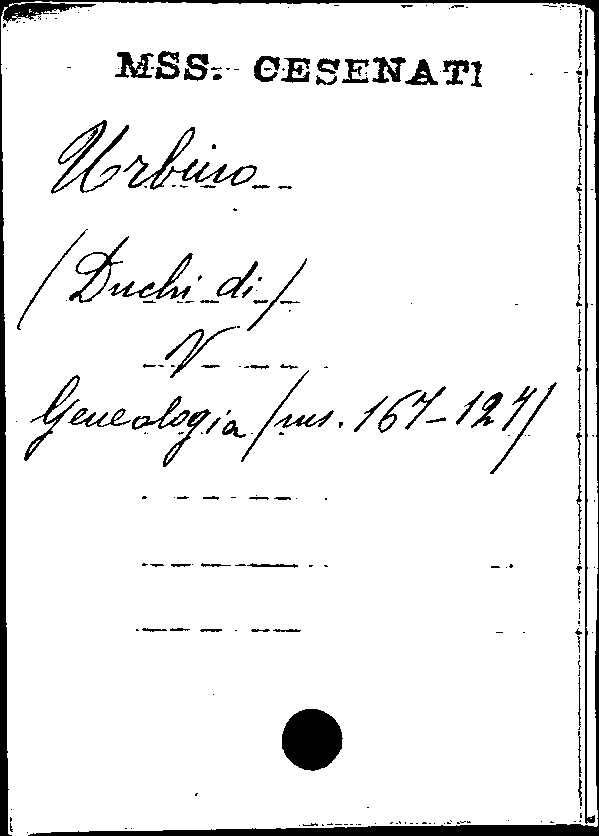 MSS. CESENATI
Urbino
(Duchi di)
V
Genealogia (ms. 167-127)